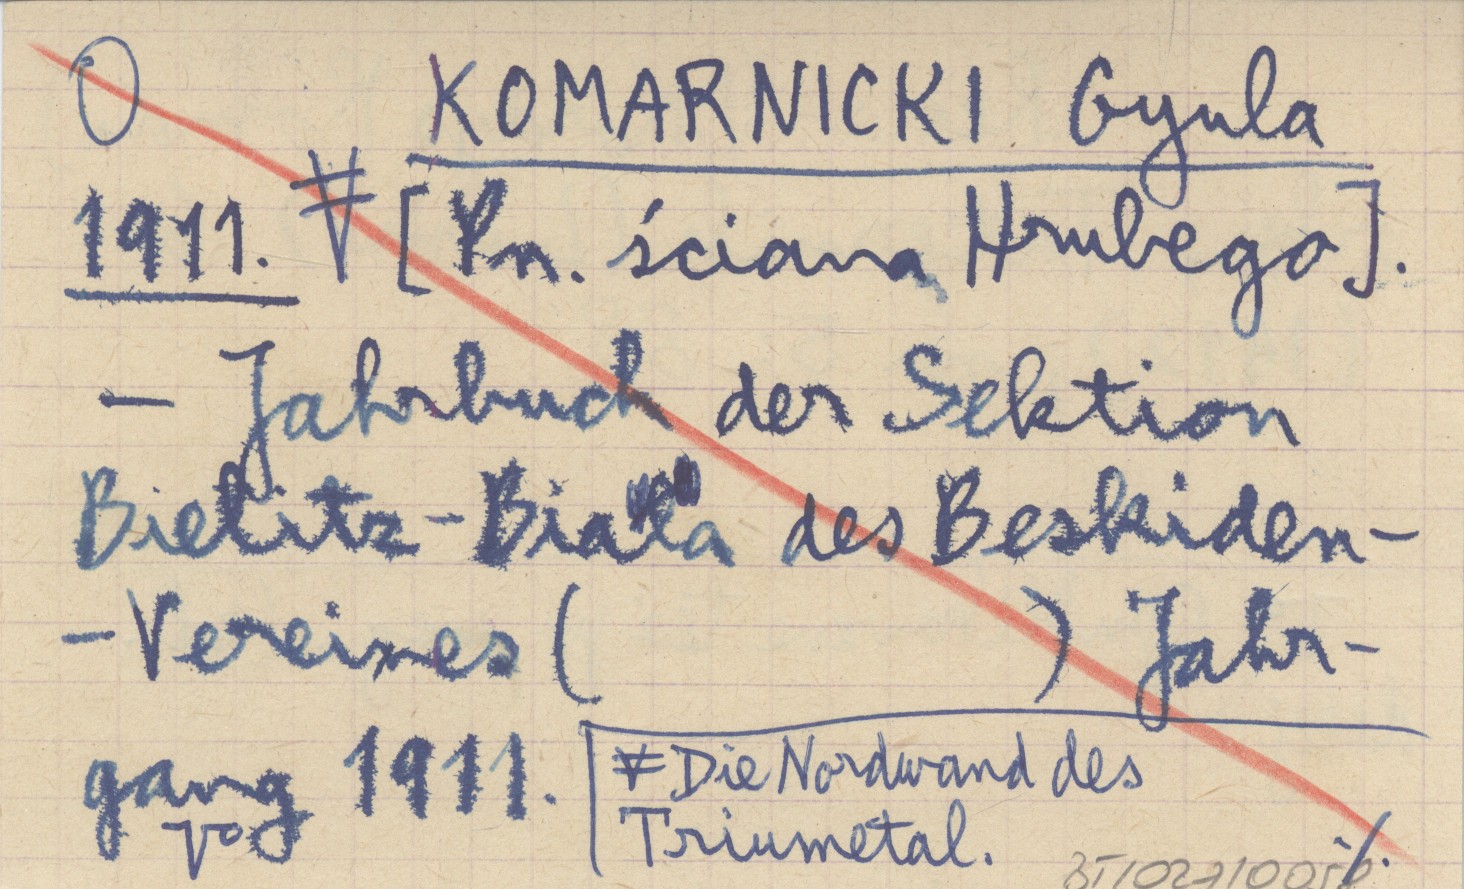 O KOMARNICKI Gyula
1911. ≠ [Pn. ściana Hrubego].
- Jahrbuch der Sektion
Bielitz-Biala des Beskiden-
-Vereines ( ) Jahr-
gang 1911.
≠ Die Nordwand des
Triumetal.
·/.